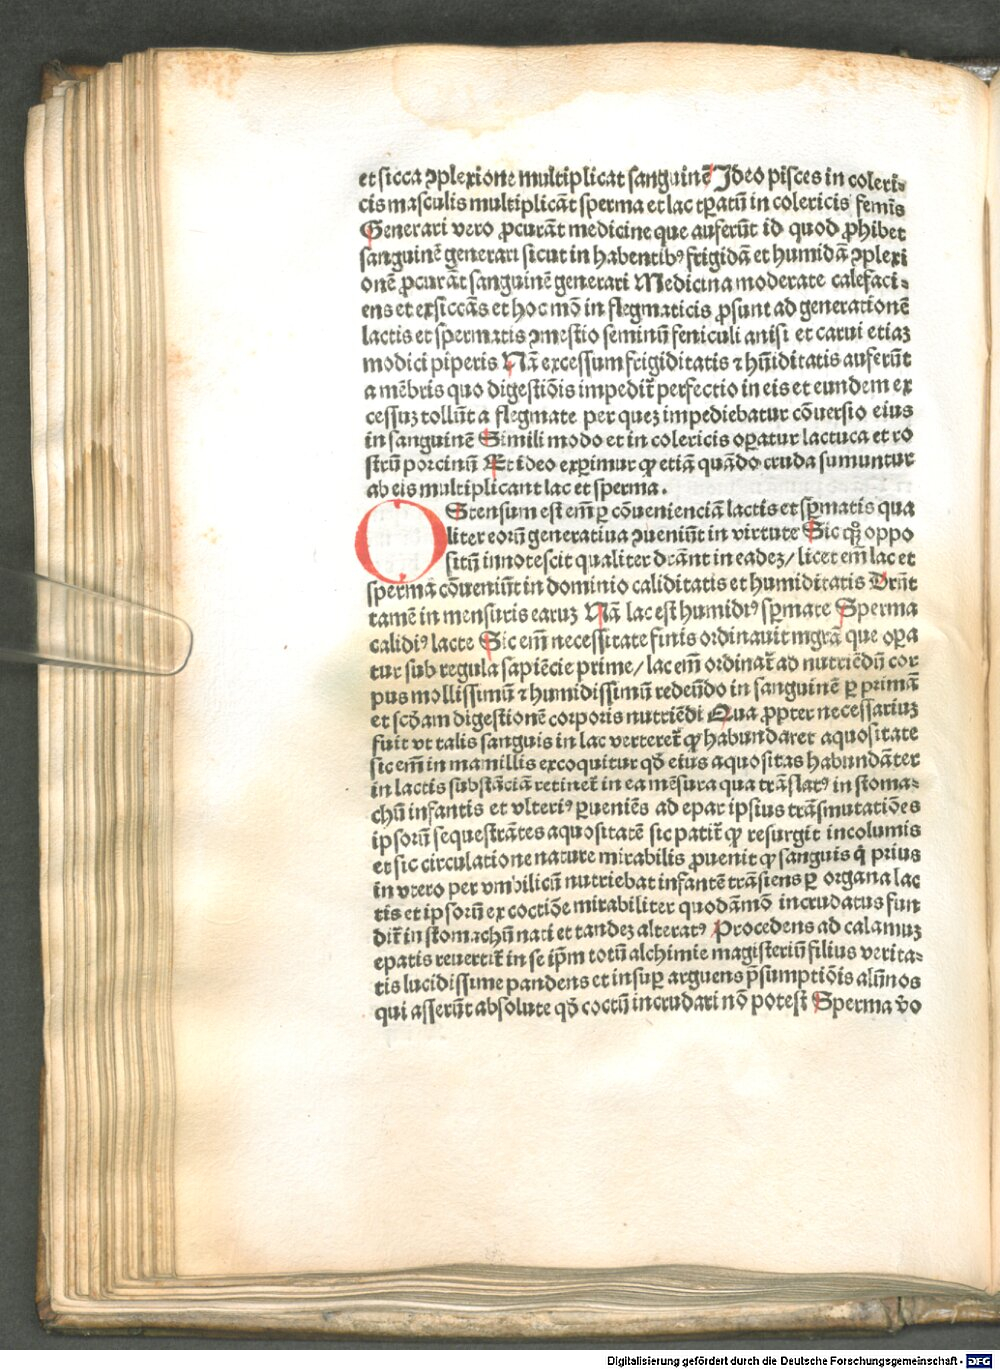 et sicca ꝯplexione multiplicat sanguinē Ideo pisces in coleri-
cis masculis multiplicāt sperma et lac tꝑatū in colericis femīs
Generari vero ꝓcurāt medicine que auferūt id quod ꝓhibet
sanguinē generari sicut in habentibꝰ frigidā et humidā ꝯplexi
onē ꝓcurāt sanguinē generari Medicina moderate calefaci-
ens et exsiccās et hoc mō in flegmaticis ꝓsunt ad generationē
lactis et spermatis ꝯmestio seminū feniculi anisi et carui etiaꝫ
modici piperis Nā excessum frigiditatis ⁊ hūiditatis auferūt
a mēbris quo digestiōis impedir̄ perfectio in eis et eundem ex
cessuꝫ tollūt a flegmate per queꝫ impediebatur cōuersio eius
in sanguinē Simili modo et in colericis oꝑatur lactuca et ro
strū porcinū Et ideo exꝑimur ꝙ etiā quādo cruda sumuntur
ab eis multiplicant lac et sperma.
OStensum est em̄ ꝑ cōuenienciā lactis et sꝑmatis qua
liter eorū generatiua ꝯueniūt in virtute Sic oppo
sitū innotescit qualiter dr̄ant in eadeꝫ / licet em̄ lac et
sperma cōueniūt in dominio caliditatis et humiditatis Dr̄nt
tamē in mensuris earuꝫ Nā lac est humidiꝰ sꝑmate Sperma
calidiꝰ lacte Sic em̄ necessitate finis ordinauit mgrā que oꝑa
tur sub regula sapiēcie prime / lac em̄ ordinar̄ ad nutriēdū cor
pus mollissimū ⁊ humidissimū redeūdo in sanguinē ꝑ primā
et scd̄am digestionē corporis nutriēdi Qua ꝓpter necessariuꝫ
fuit vt talis sanguis in lac verteret̄ ꝙ habundaret aquositate
sic em̄ in mamillis excoquitur qd̄ eius aquositas habundāter
in lactis substāciā retinet̄ in ea mēsura qua trāslatꝰ in stoma-
chū infantis et vlteriꝰ ꝑueniēs ad epar ipsius trāsmutatiōes
ipsorū sequestrātes aquositatē sic patit̄ ꝙ resurgit incolumis
et sic circulatione nature mirabilis ꝓuenit ꝙ sanguis q̄ prius
in vtero per vmbilicū nutriebat infantē trāsiens ꝑ organa lac
tis et ipsorū excoctiōe mirabiliter quodāmō incrudatus fun
dit̄ in stomachū nati et tandeꝫ alteratꝰ Procedens ad calamuꝫ
epatis reuertit̄ in se ip̄m totū alchimie magisteriū filius verita-
tis lucidissime pandens et insuꝑ arguens p̄sumptiōis alūnos
qui asserūt absolute qd̄ coctū incrudari nō potest Sperma v̄o
Digitalisierung gefördert durch die Deutsche Forschungsgemeinschaft - DFG